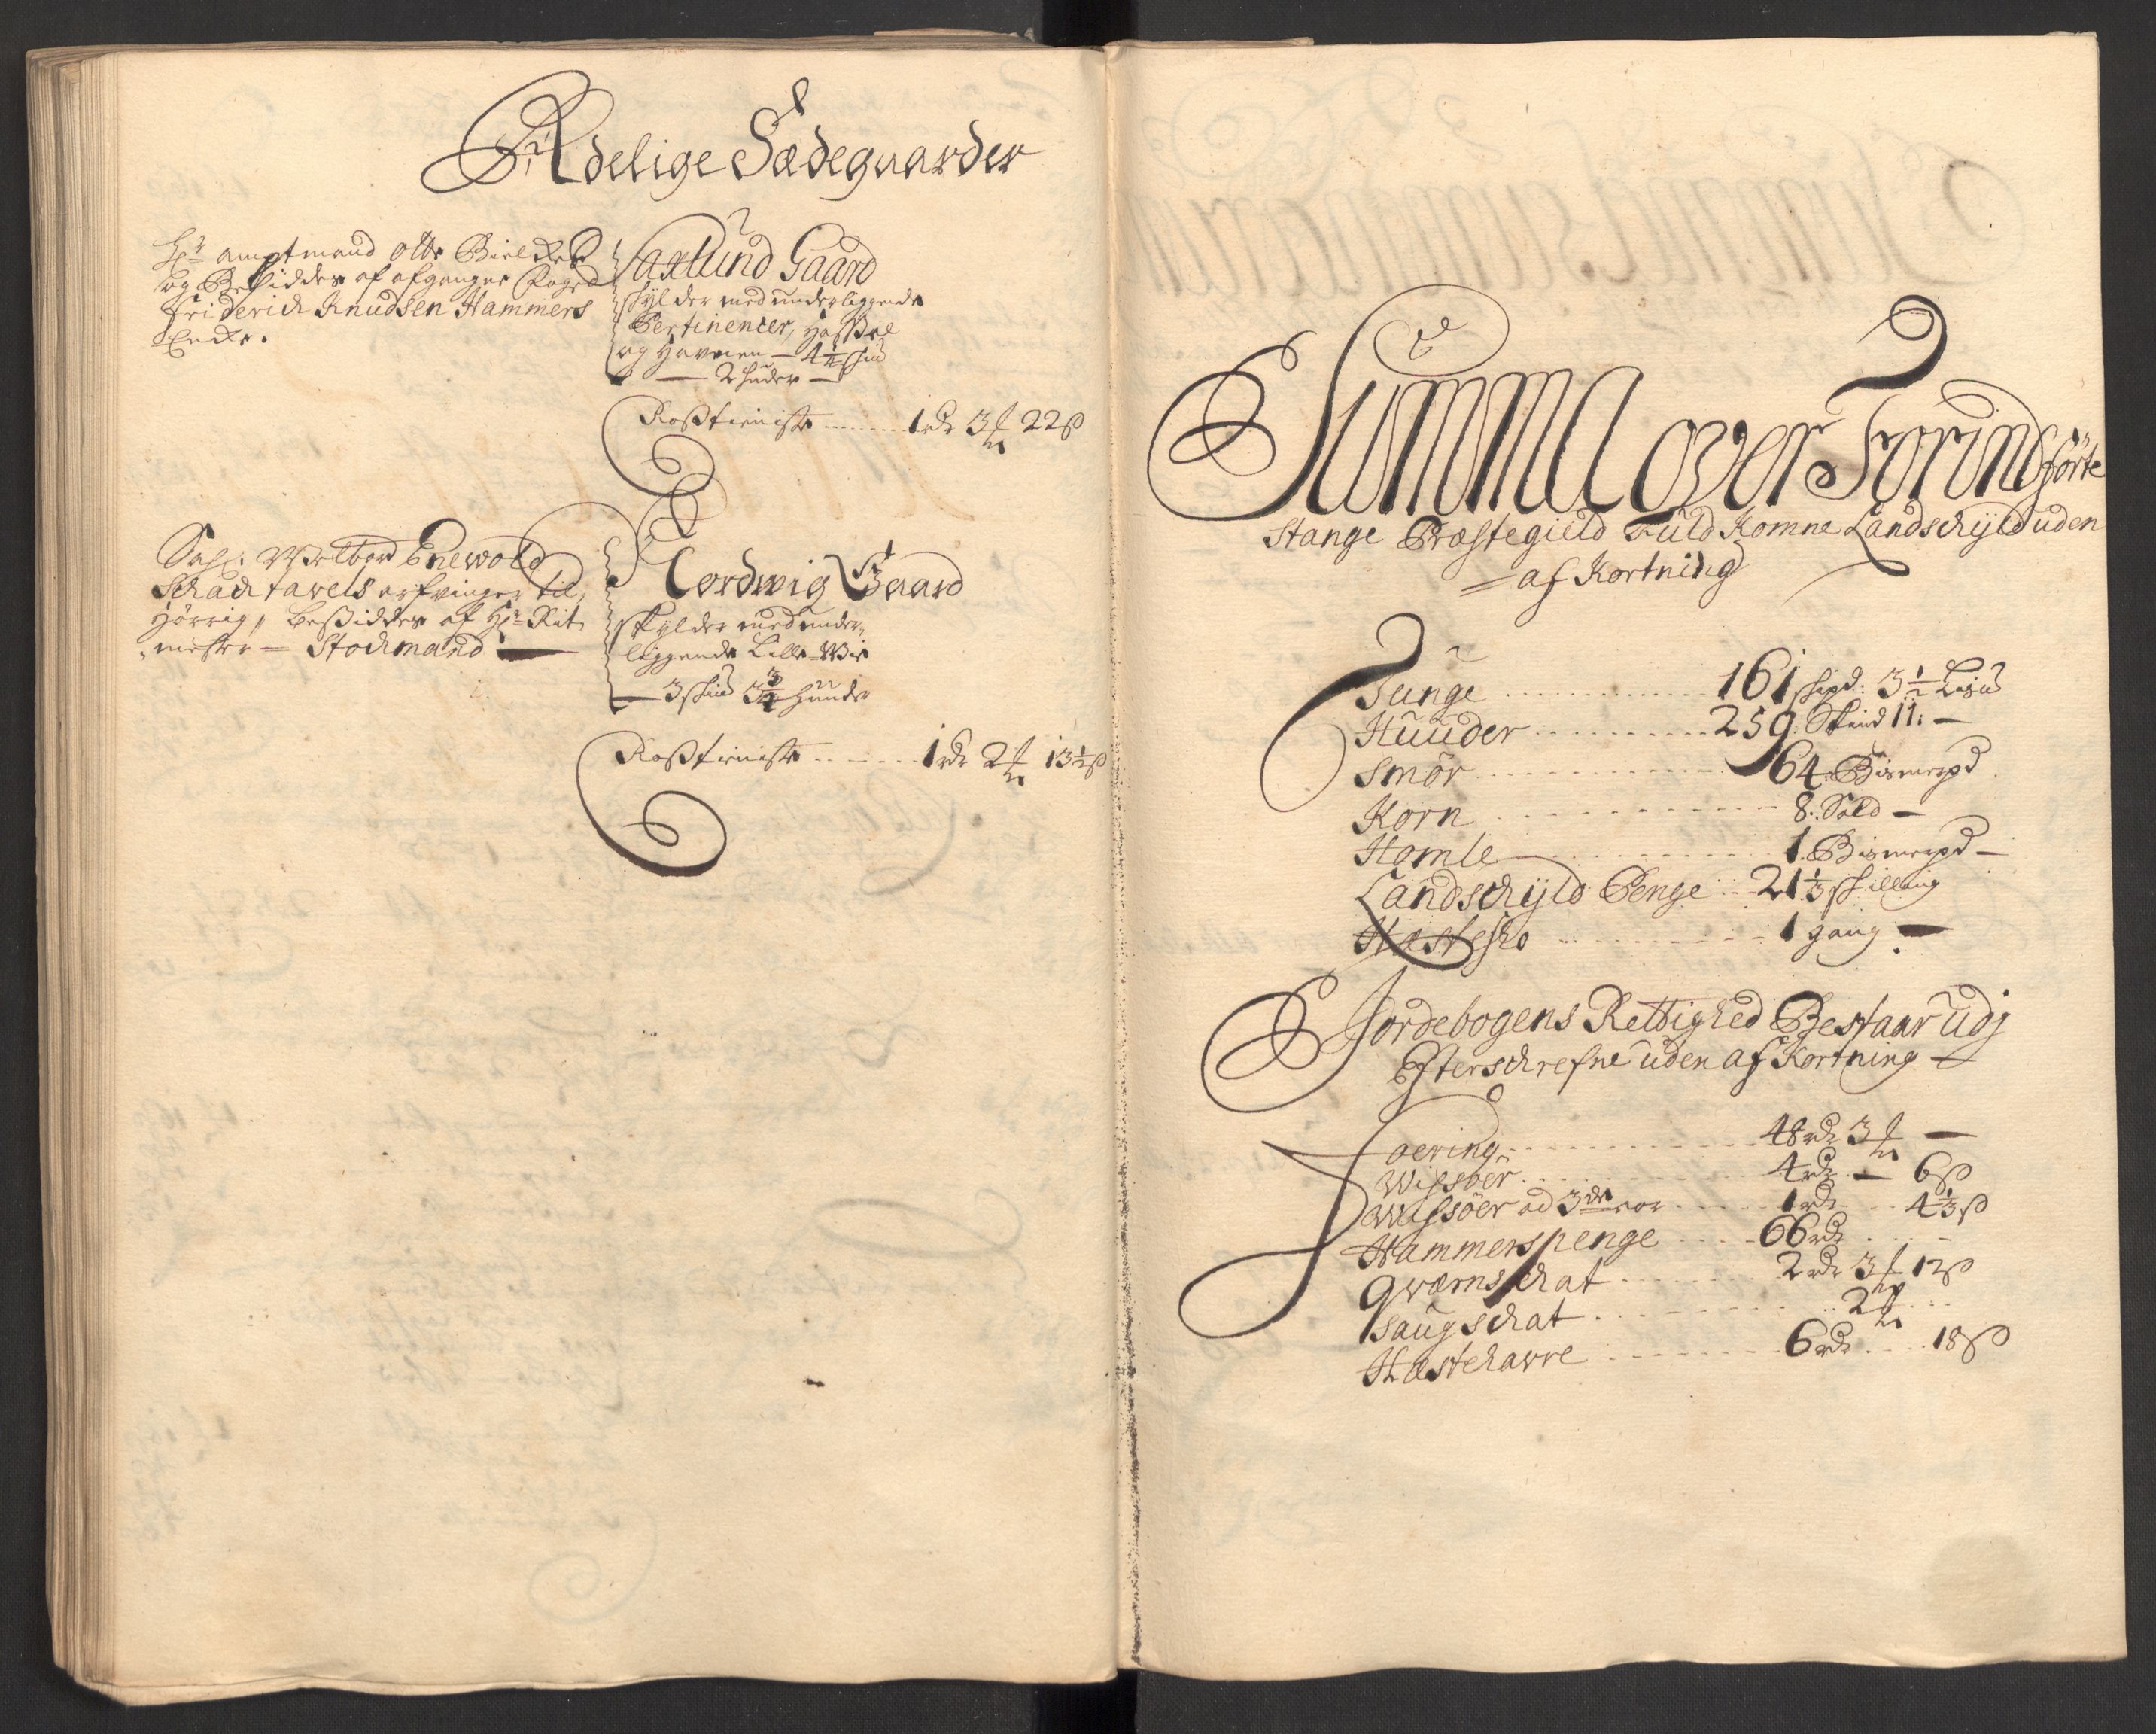 Adelige Sædegaarder
Hr amptmand Otto Bielkes
og Besidder af afgangne Foged
Friderich Knudsen Hammers
Encke.
Saxlund Gaard
skylder med underliggende
Pertinencer,
og Hafnen — 4½ Hud
— 2 huder —
Rostieniste ...... 1 rdr 3 ℔ 22 ß
Sahl. Welbr Enewold
Schachtavels arfvinger til-
hörrig, besidder af Hr Rit-
mester — Stochmand —
Nordwig Gaard
skylder med under-
liggende Lille Wie
— 3 skind 3¾ huuder
Rostieniste ...... 1 rdr 2 ℔ 13½ ß
Summa over Forindförte
Stange Præstegield Fuld Komne Landschyld uden
— af Kortning
Tunge ...... 161 skpd: 3½ Lispd
Huuder ...... 259. Skind 11. —
Smör ...... 64. Bismerpd
Korn ...... 8. Sold —
Homle ...... 1. Bismerpd —
Landschyld Penge 21⅓ skilling
Hestesko ...... 1 gang —
Jordebogens Rettighed Bestaar udj
Efterschrefne uden af Kortning —
Foering ...... 48 rdr 3 ℔ —
Wissöer ...... 4 rdr — 6 ß
Wissöer ad 3die aar ...... 1 rdr .. 4⅓ ß
Hammerspenge ...... 66 rdr
Qværnschat ...... 2 rdr 3 ℔ 12 ß
Saugschat ...... 2 ℔
Hæstehavre ...... 6 rdr .... 18 ß